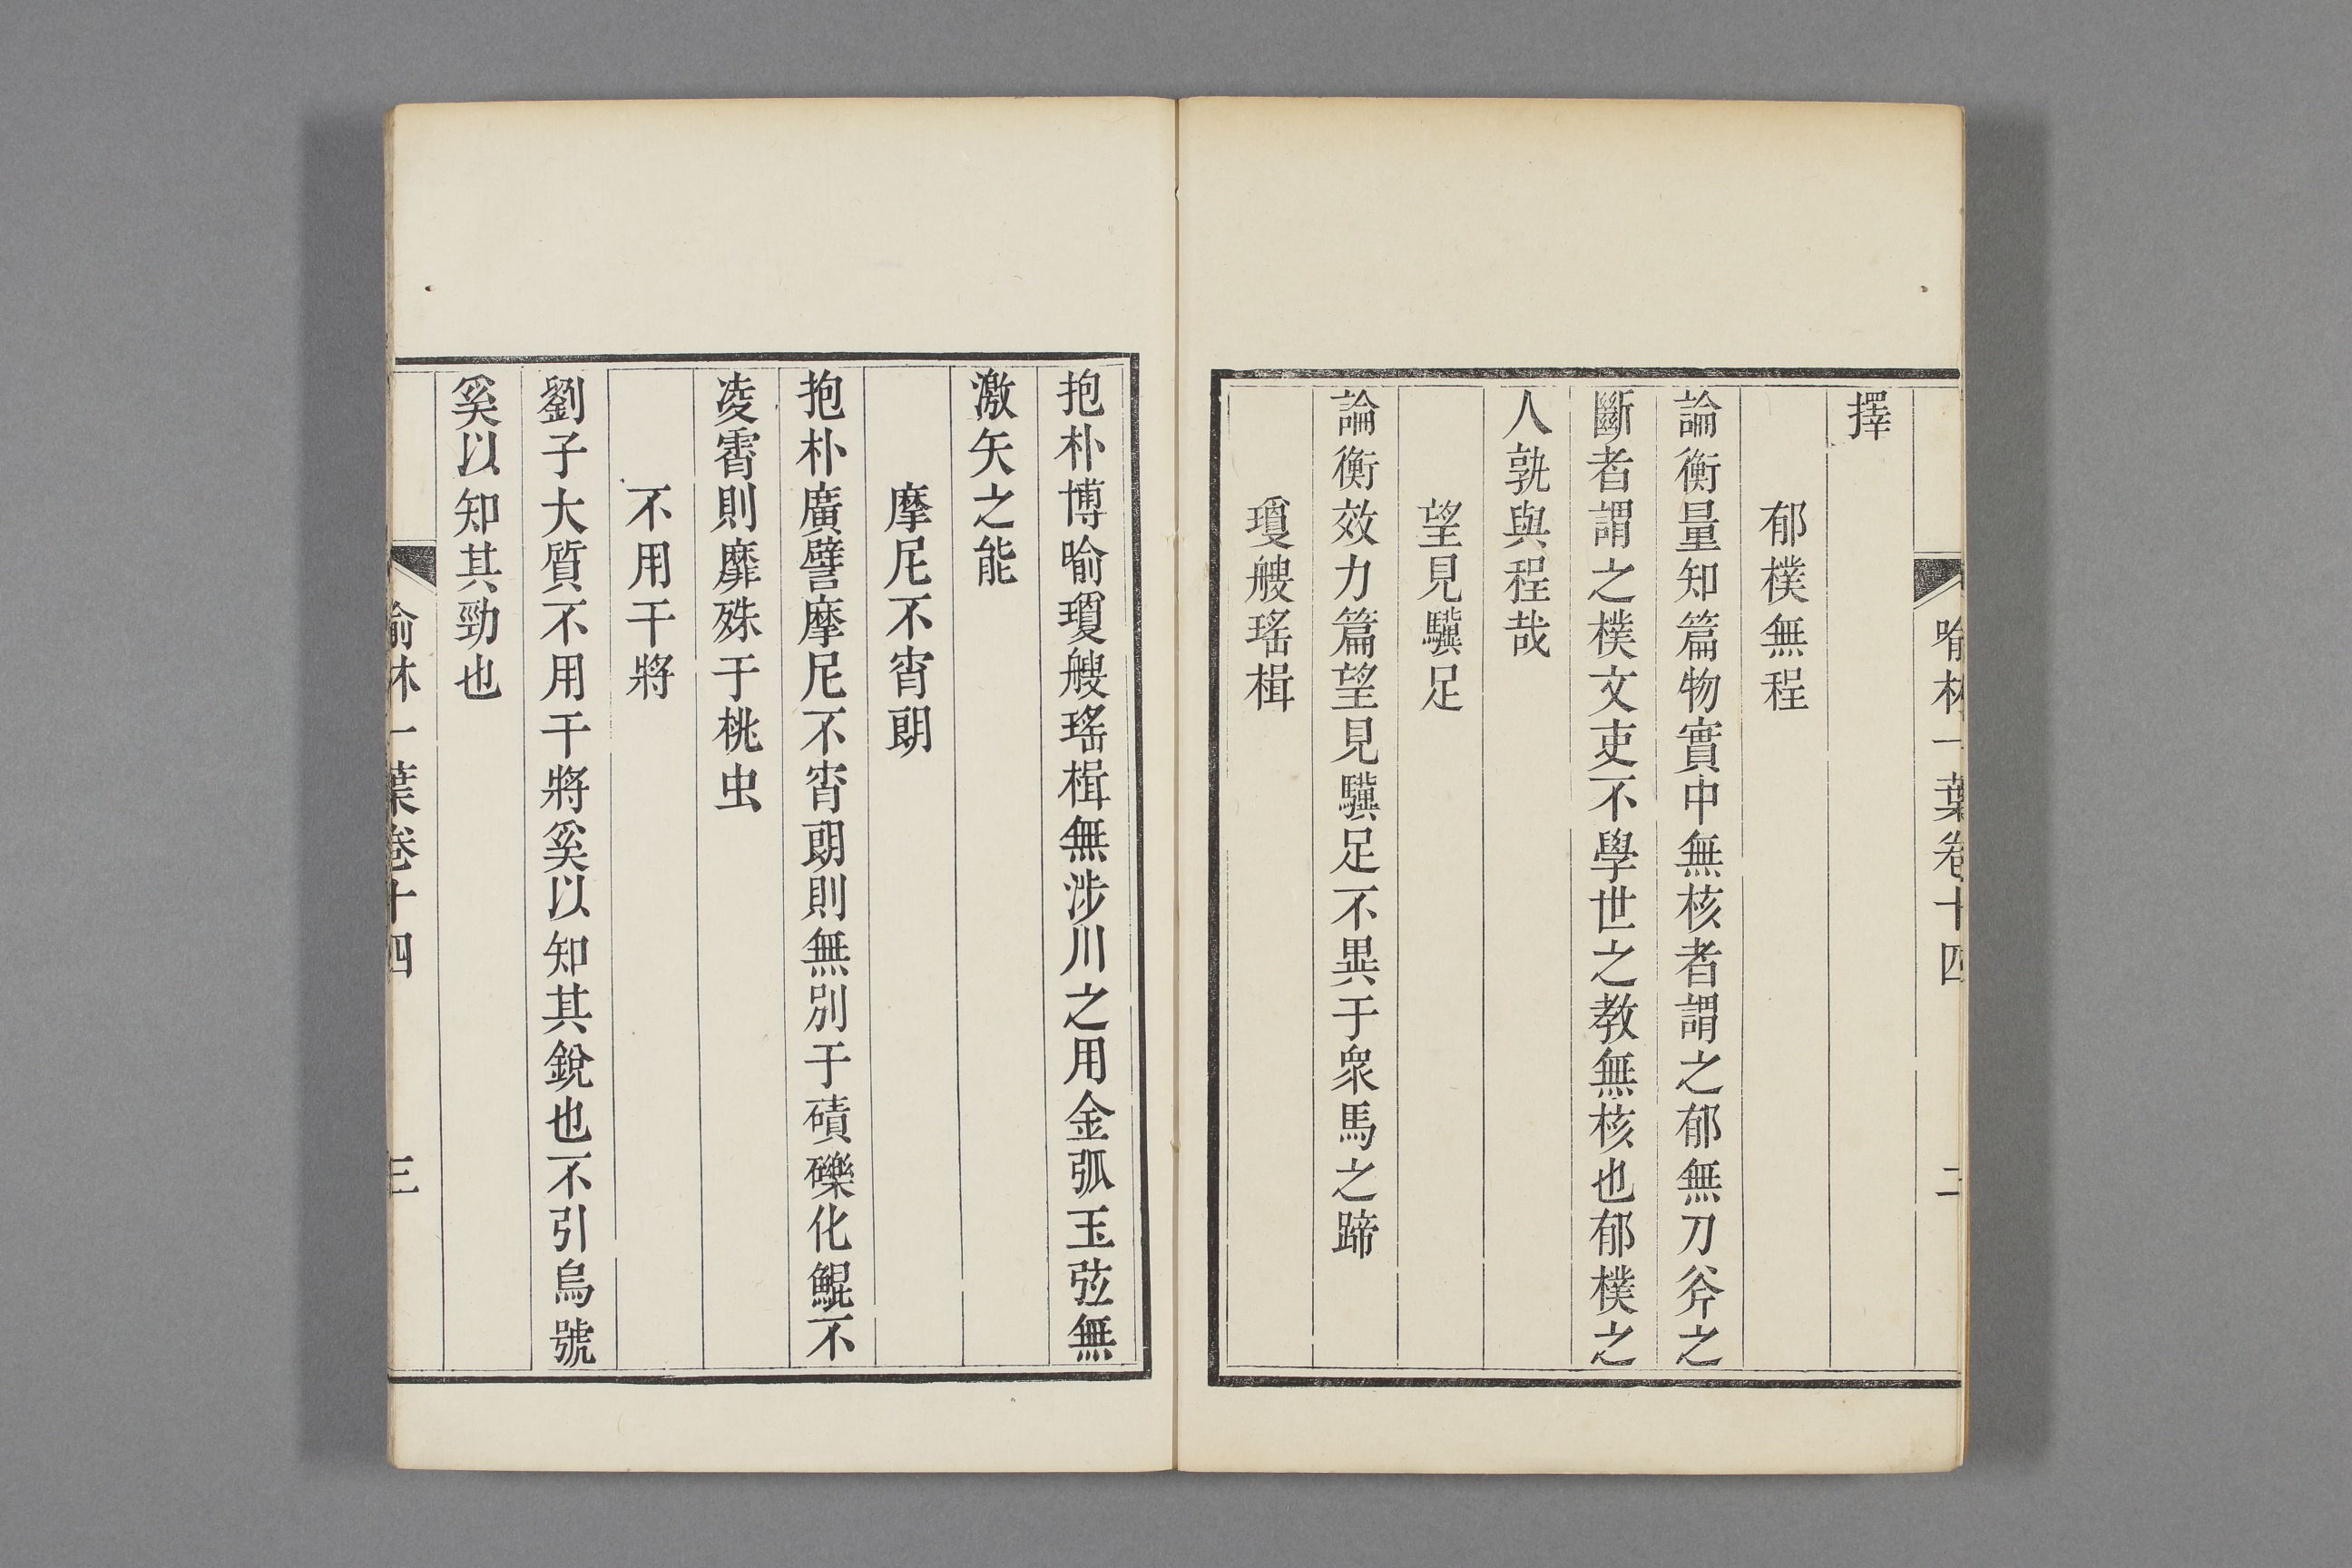 喻林一葉卷十四
二
擇
郁樸無程
論衡量知篇物實中無核者謂之郁無刀斧之
斷者謂之樸文吏不學世之教無核也郁樸之
人孰與程哉
望見驥足
論衡效力篇望見驥足不異于衆馬之蹄
瓊艘瑤楫
抱朴博喻瓊艘瑤楫無涉川之用金弧玉弦無
激矢之能
摩尼不宵朗
抱朴廣譬摩尼不宵朗則無別于磧礫化鯤不
凌霄則靡殊于桃虫
不用干將
劉子大質不用干將奚以知其銳也不引烏號
奚以知其勁也
喻林一葉卷十四
三